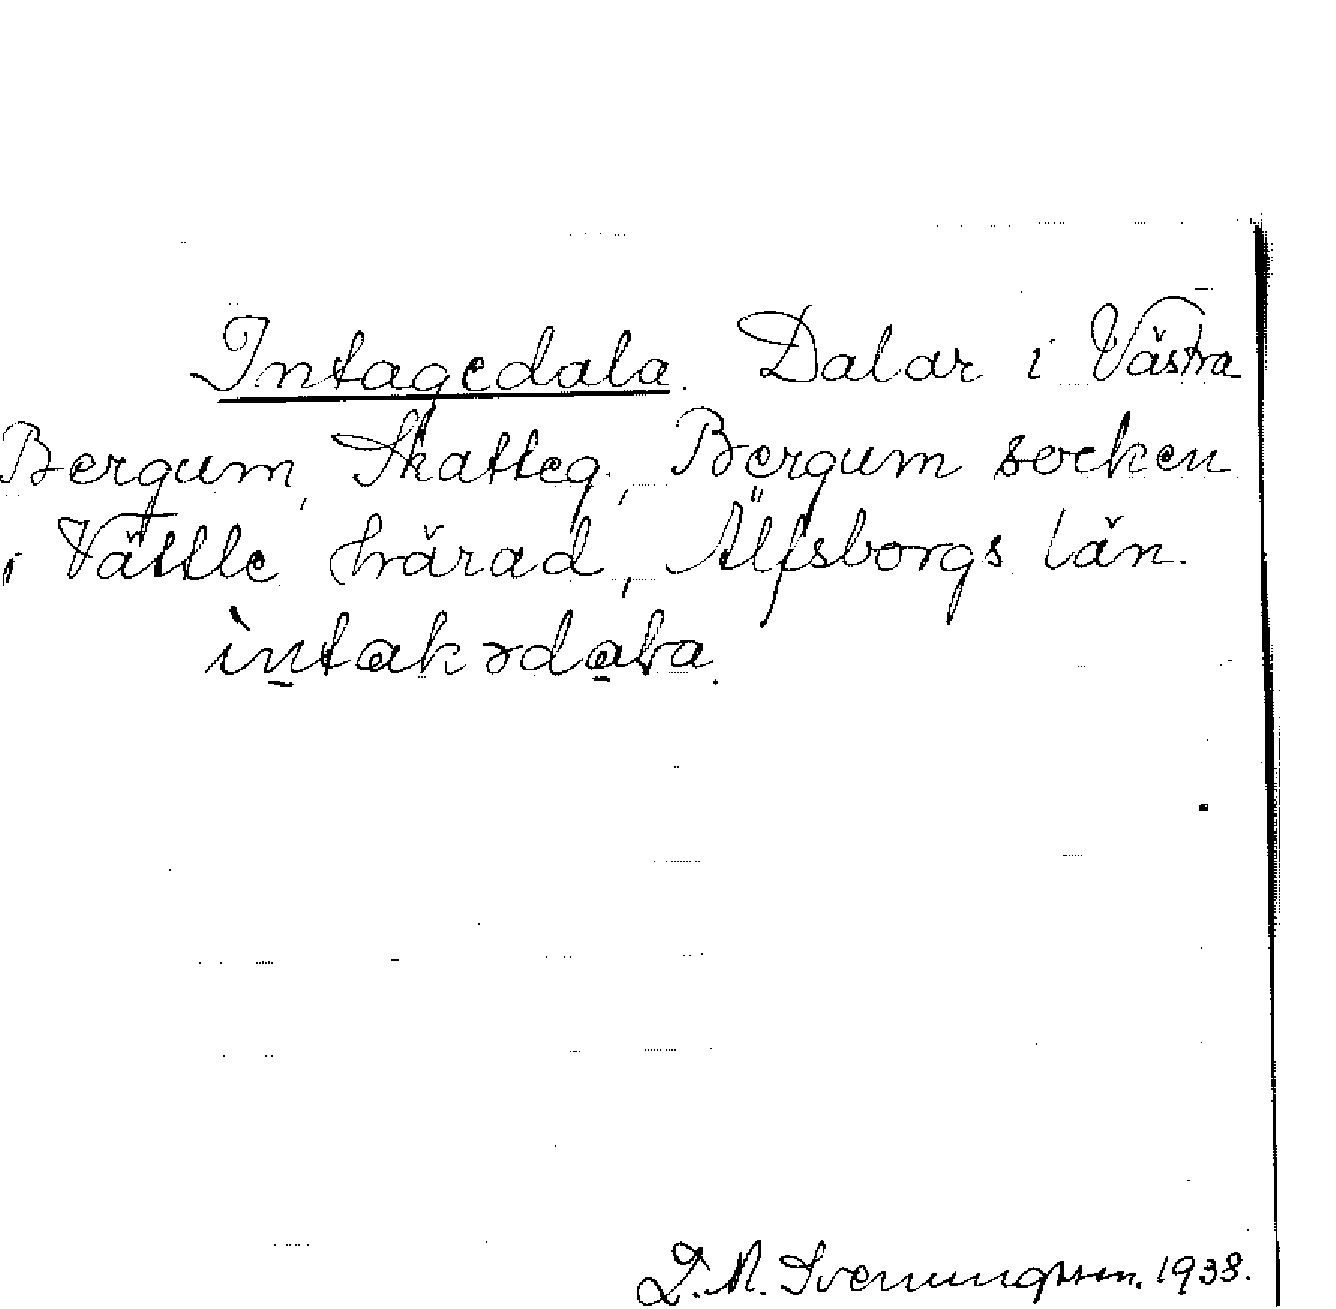 Intagedala. Dalar i Västra
Bergum, Skatteg., Bergum socken
i Vättle härad, Älfsborgs län.
ìntakədaƚa.
D. A. Svenungsson. 1938.